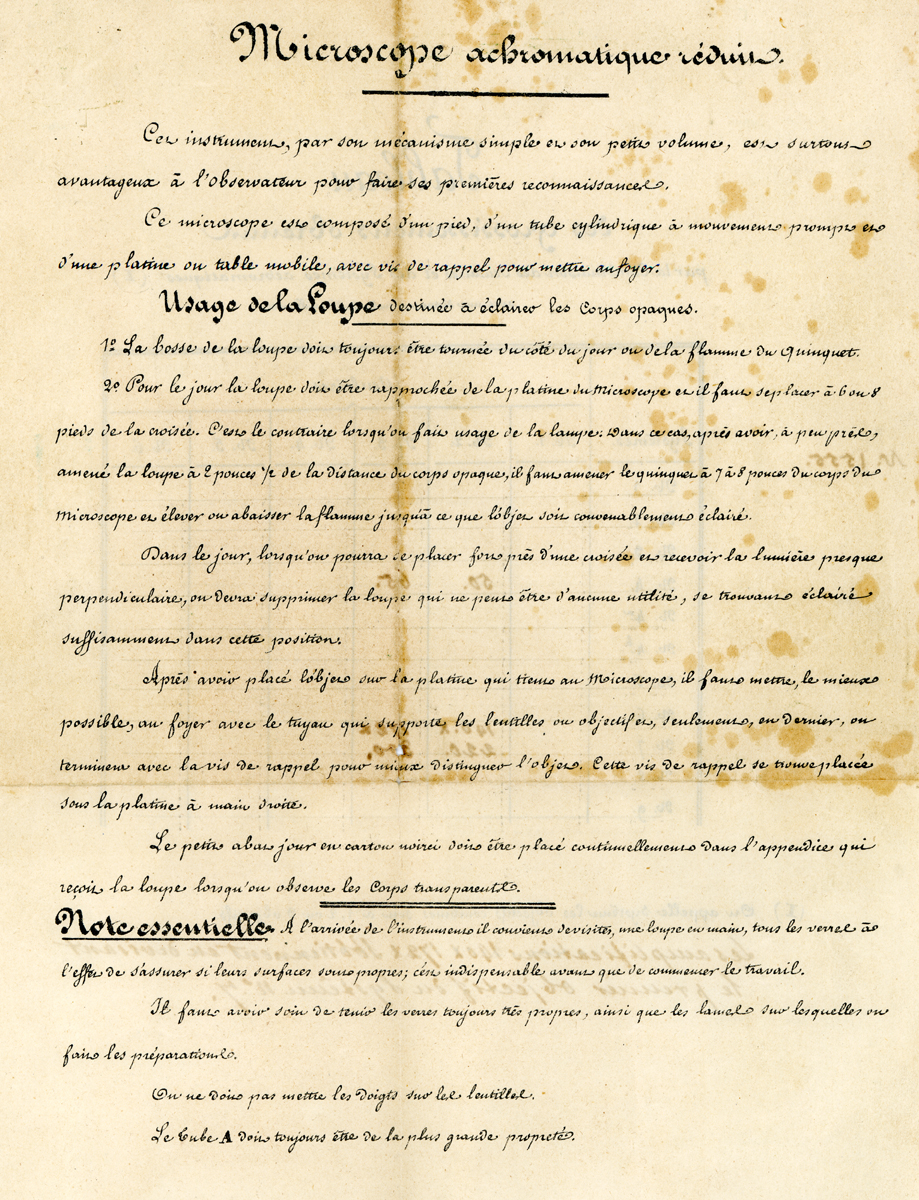 Microscope achromatique réduit.
Cet instrument, par son mécanisme simple et son petit volume, est surtout
avantageux à l'Observateur pour faire ses premières reconnaissances.
Ce microscope est composé d'un pied, d'un tube cylindrique à mouvement prompt et
d'une platine ou table mobile, avec vis de rappel pour mettre au foyer.
Usage de la Loupe destinée à éclairer les Corps opaques.
1º La bosse de la loupe doit toujours être tournée du côté du jour ou de la flamme du Quinquet.
2º Pour le jour la loupe doit être rapprochée de la platine du Microscope et il faut se placer à 6 ou 8
pieds de la croisée. C'est le contraire lorsqu'on fait usage de la lampe. Dans ce cas, après avoir, à peu près,
amené la loupe à 2 pouces ½ de la distance du corps opaque, il faut amener le quinquet à 7 à 8 pouces du corps du
Microscope et élever ou abaisser la flamme jusqu'à ce que l'objet soit convenablement éclairé.
Dans le jour, lorsqu'on pourra se placer fort près d'une croisée et recevoir la lumière presque
perpendiculaire, on devra supprimer la loupe qui ne peut être d'aucune utilité, se trouvant éclairé
suffisamment dans cette position.
Après avoir placé l'objet sur la platine qui tient au Microscope, il faut mettre, le mieux
possible, au foyer avec le tuyau qui supporte les lentilles ou objectifs, seulement, en dernier, on
terminera avec la vis de rappel pour mieux distinguer l'objet. Cette vis de rappel se trouve placée
sous la platine à main droite.
Le petit abat jour en carton noirci doit être placé continuellement dans l'appendice qui
reçoit la loupe lorsqu'on observe les Corps transparents.
Note essentielle. À l'arrivée de l'instrument il convient de visiter, une loupe en main, tous les verres à
l'effet de s'assurer si leurs surfaces sont propres; c'est indispensable avant que de commencer le travail.
Il faut avoir soin de tenir les verres toujours très propres, ainsi que les lames sur lesquelles on
fait les préparations.
On ne doit pas mettre les doigts sur les lentilles.
Le Tube A doit toujours être de la plus grande propreté.